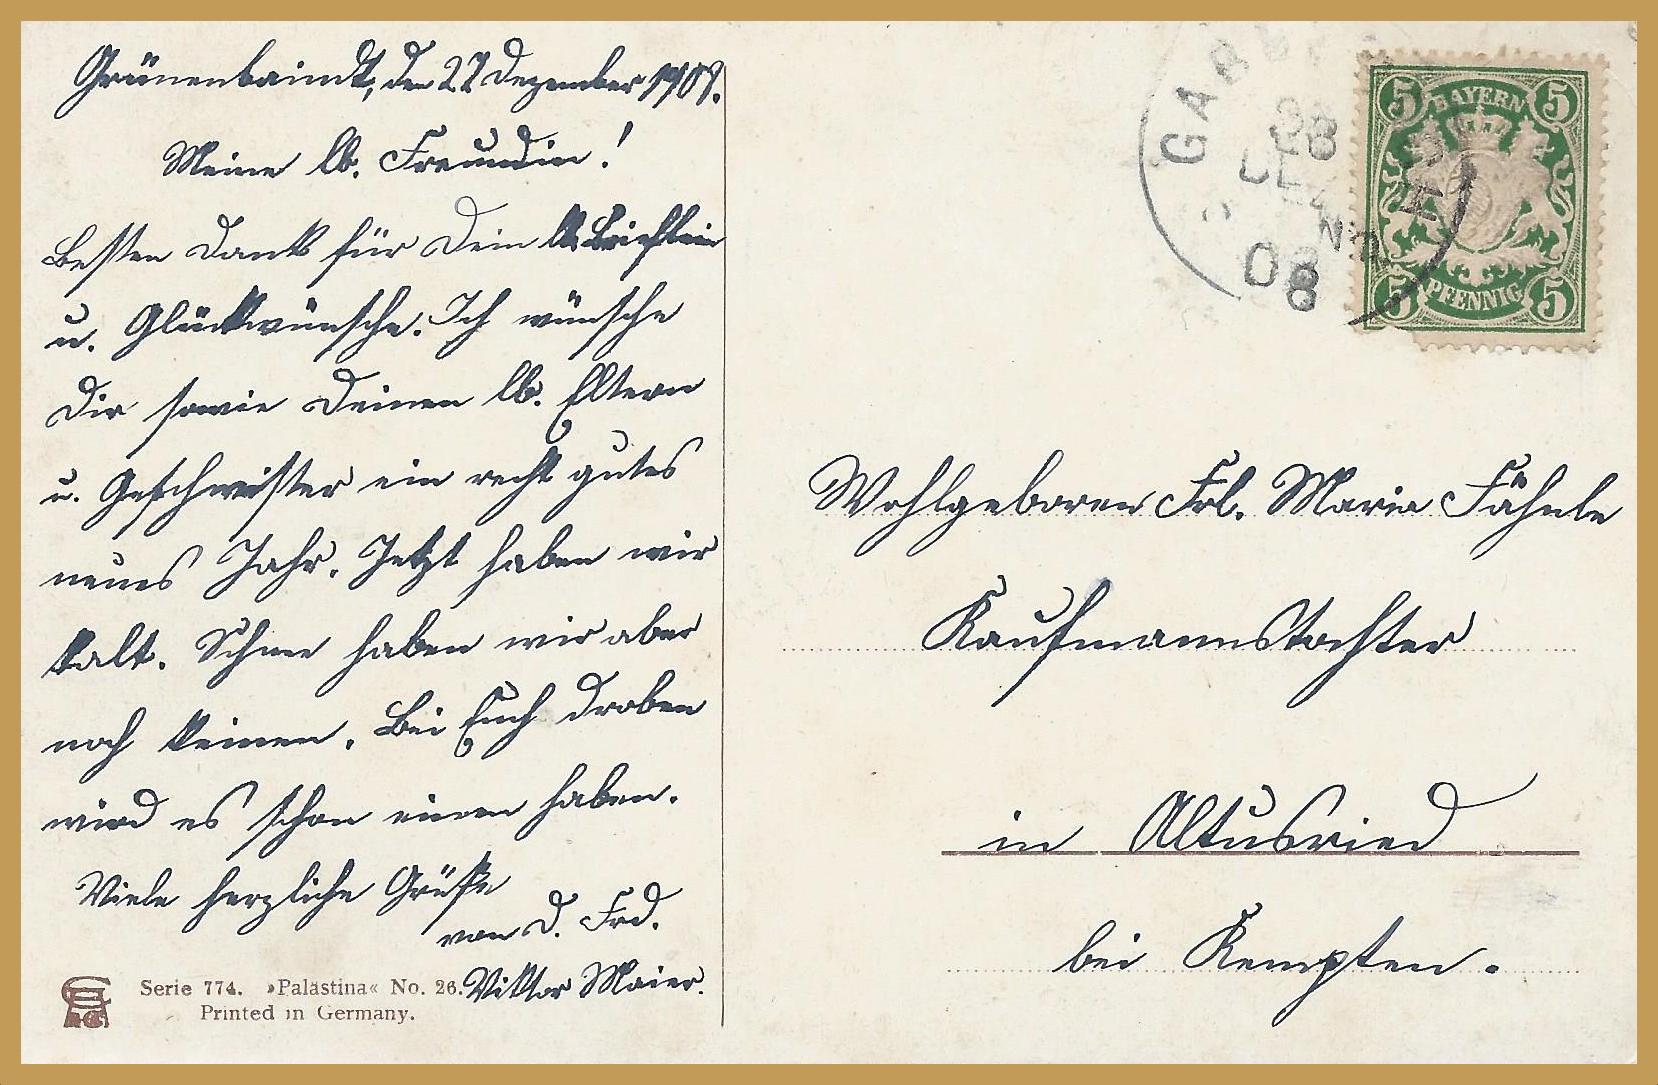 Grünenbaindt, den 27 Dezember 1908.
Meine lb. Freundin!
Besten Dank für Dein lb. Brieflein
u. Glückwünsche. Ich wünsche
Dir sowie Deinen lb. Eltern
u. Geschwister ein recht gutes
neues Jahr. Jetzt haben wir
kalt. Schnee haben wir aber
noch keinen. Bei Euch droben
wird es schon einen haben.
Viele herzliche Grüße
von D. Frd.
Viktor Maier.
Serie 774. »Palästina« No. 26.
Printed in Germany.
28
DEZ
08
5 BAYERN 5
5 PFENNIG 5
Wohlgeboren Frl. Maria Fähnle
Kaufmannstochter
in Altusried
bei Kempten.